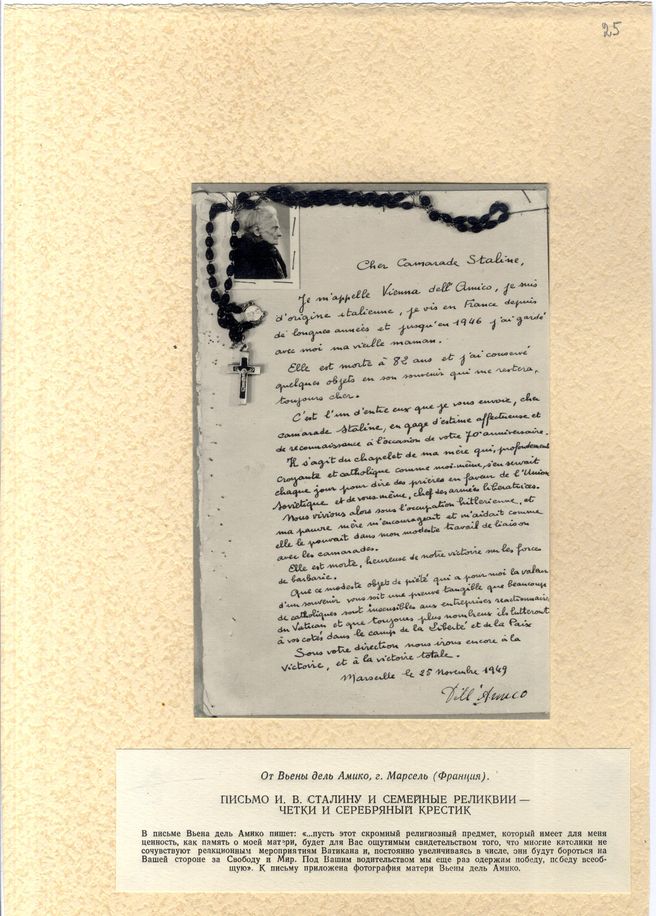 25
Cher Camarade Staline,
Je m'appelle Vienna dell'Amico, je suis
d'origine italienne, je vis en France depuis
de longues années et jusqu'en 1946 j'ai gardé
avec moi ma vieille maman.
Elle est morte à 82 ans et j'ai conservé
quelques objets en son souvenir qui me restera,
toujours cher.
C'est l'un d'entre eux que je vous envoie, cher
camarade Staline, en gage d'estime affectueuse et
de reconnaissance à l'occasion de votre 70 anniversaire.
Il s'agit du chapelet de ma mère qui, profondement
croyante et catholique comme moi-même, s'en servait
chaque jour pour dire des prières en faveur de l'Union
Soviétique et de vous même, chef des armées libératrices.
Nous vivions alors sous l'occupation hitlerienne, et
ma pauvre mère m'encourageait et m'aidait comme
elle le pouvait dans mon modeste travail de liaison
avec les camarades.
Elle est morte, heureuse de notre victoire sur les forces
de barbarie.
Que ce modeste objet de piété qui a pour moi la valeur
d'un souvenir vous soit une preuve tangible que beaucoup
de catholiques sont insensibles aux entreprises reactionnaires
du Vatican et que toujours plus nombreux ils lutteront
à vos cotés dans le camp de la Liberté et de la Paix
Sous votre direction nous irons encore à la
victoire, et à la victoire totale.
Marseille le 25 Novembre 1949
Dell'Amico
От Вьены дель Амико, г. Марсель (Франция).
ПИСЬМО И. В. СТАЛИНУ И СЕМЕЙНЫЕ РЕЛИКВИИ —
ЧЕТКИ И СЕРЕБРЯНЫЙ КРЕСТИК
В письме Вьена дель Амико пишет: «...пусть этот скромный религиозный предмет, который имеет для меня
ценность, как память о моей матери, будет для Вас ощутимым свидетельством того, что многие католики не
сочувствуют реакционным мероприятиям Ватикана и, постоянно увеличиваясь в числе, они будут бороться на
Вашей стороне за Свободу и Мир. Под Вашим водительством мы еще раз одержим победу, победу всеоб-
щую». К письму приложена фотография матери Вьены дель Амико.